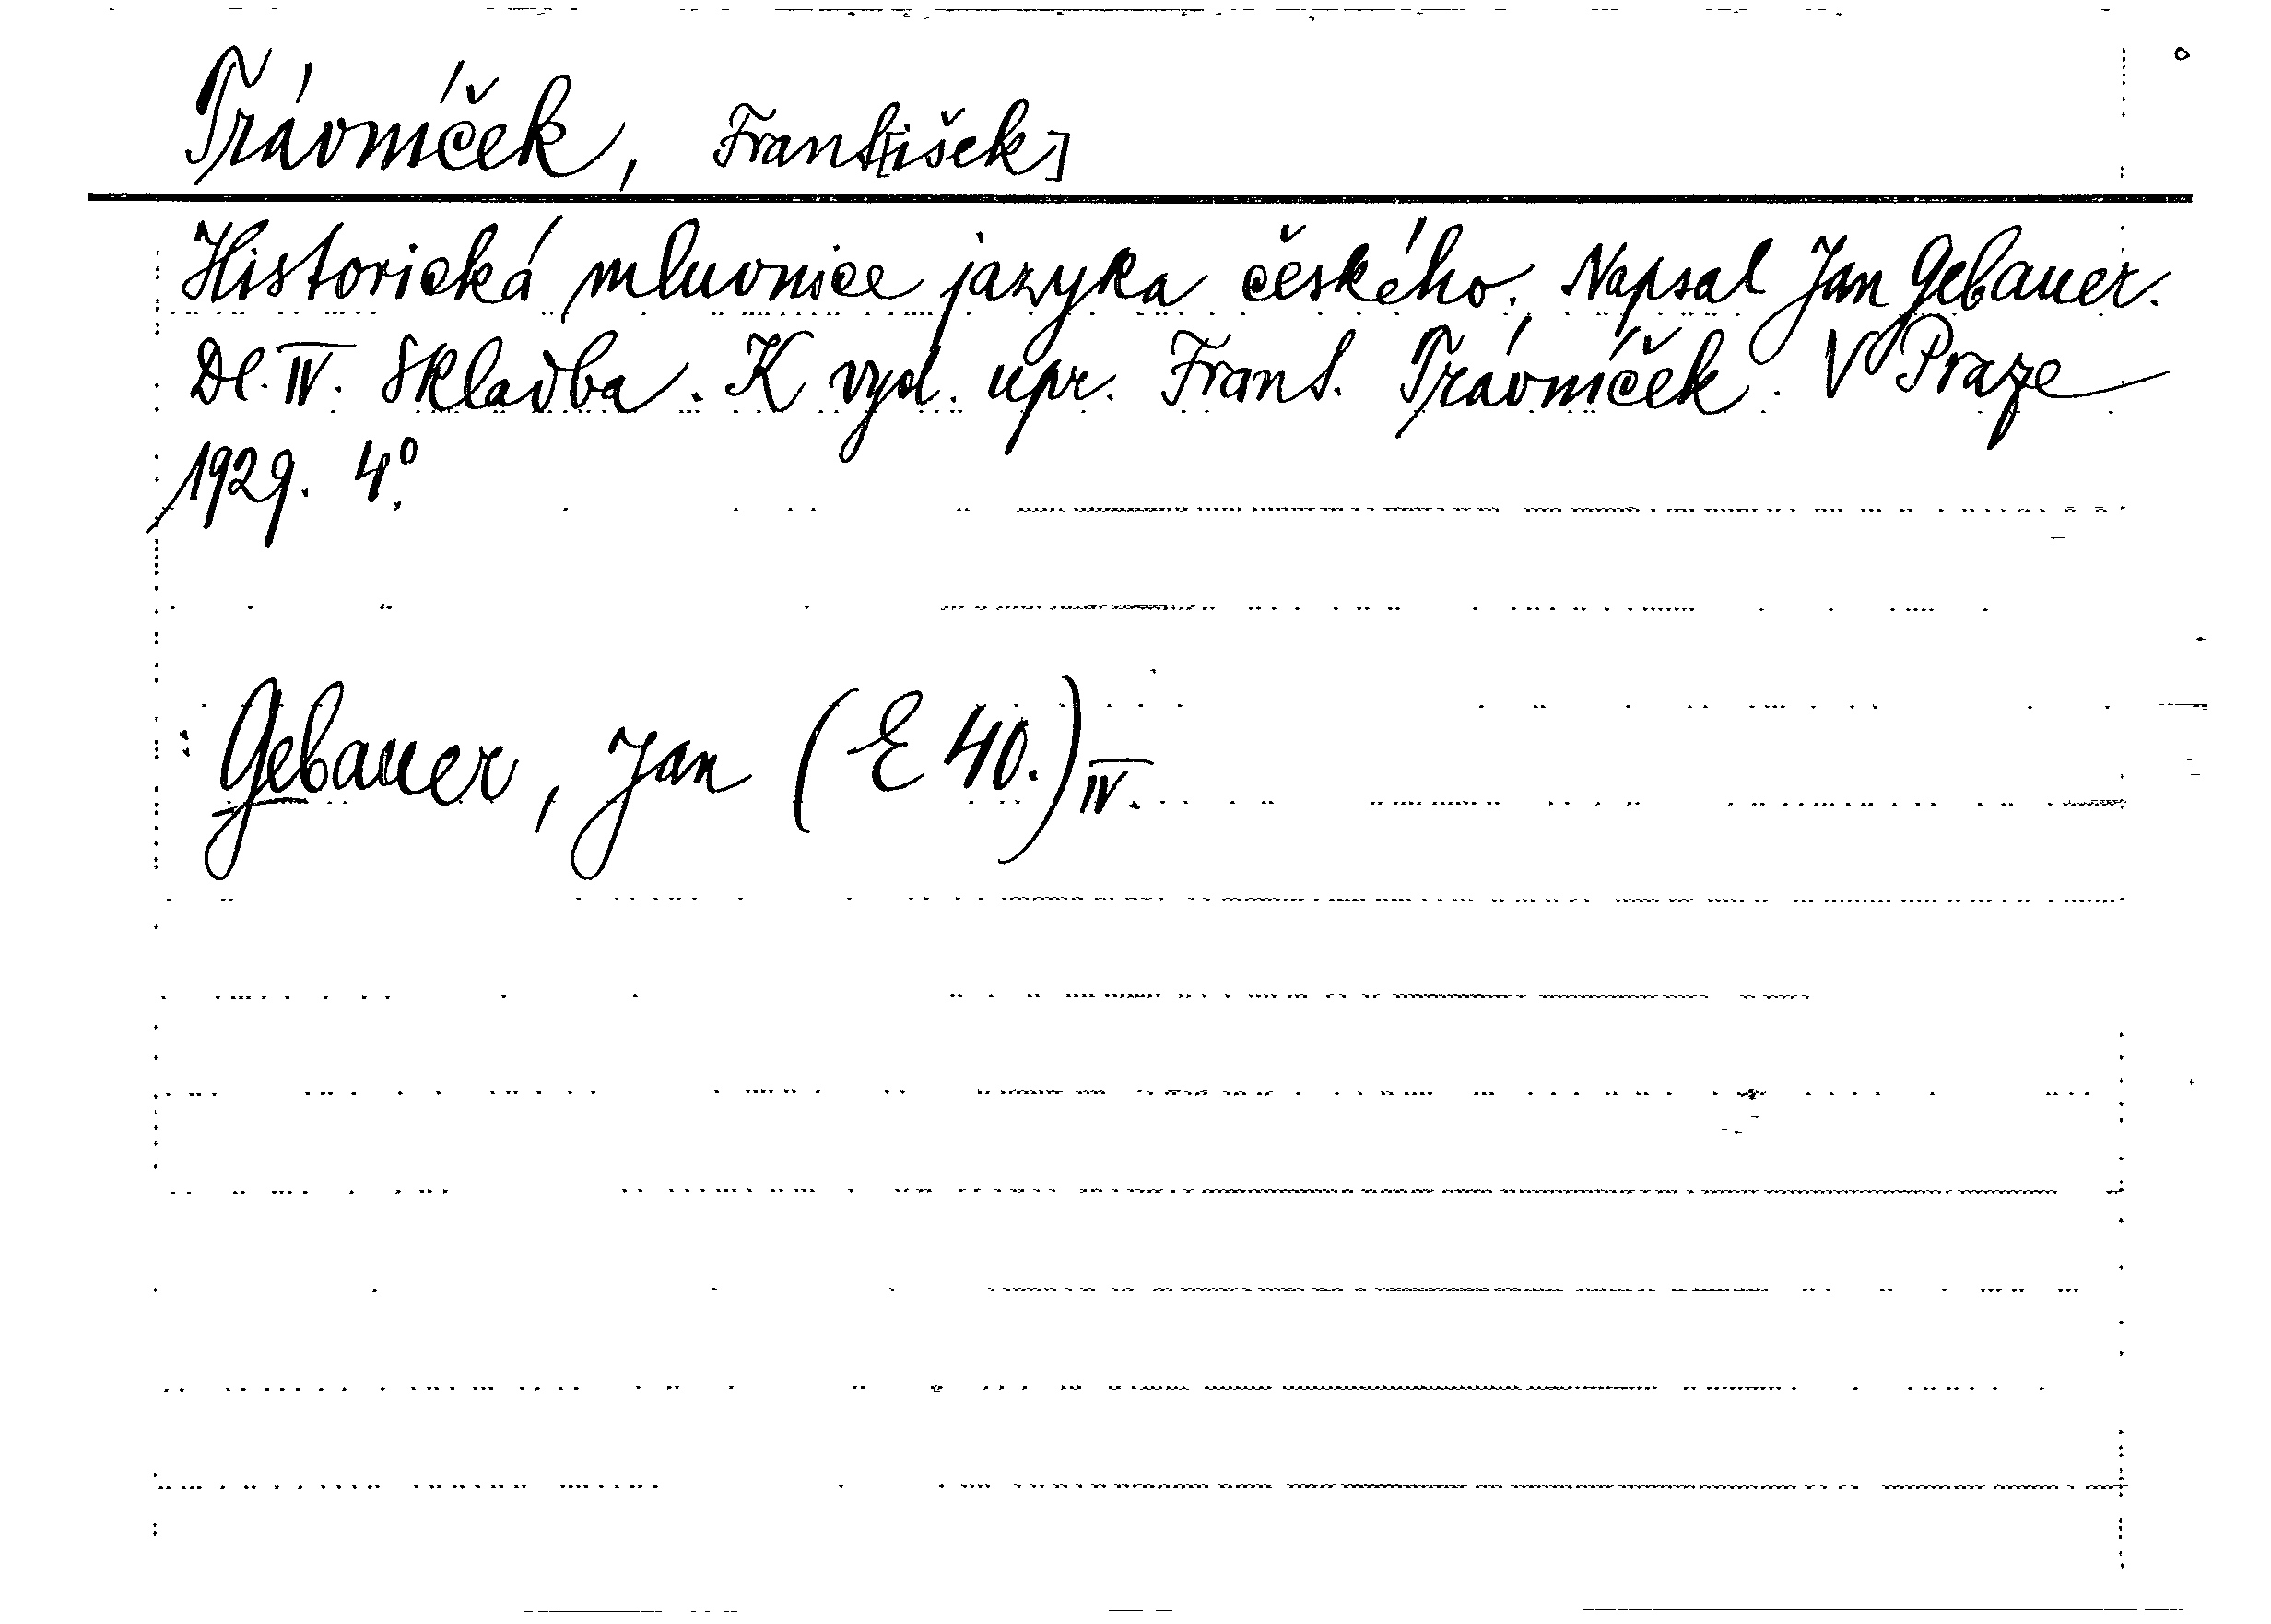 Trávníček, Frant[išek]
Historická mluvnice jazyka českého. Napsal Jan Gebauer.
Dl. IV. Skladba. K vyd. upr. Frant. Trávníček. V Praze
1929. 4°.
Gebauer, Jan (E 40.) IV.